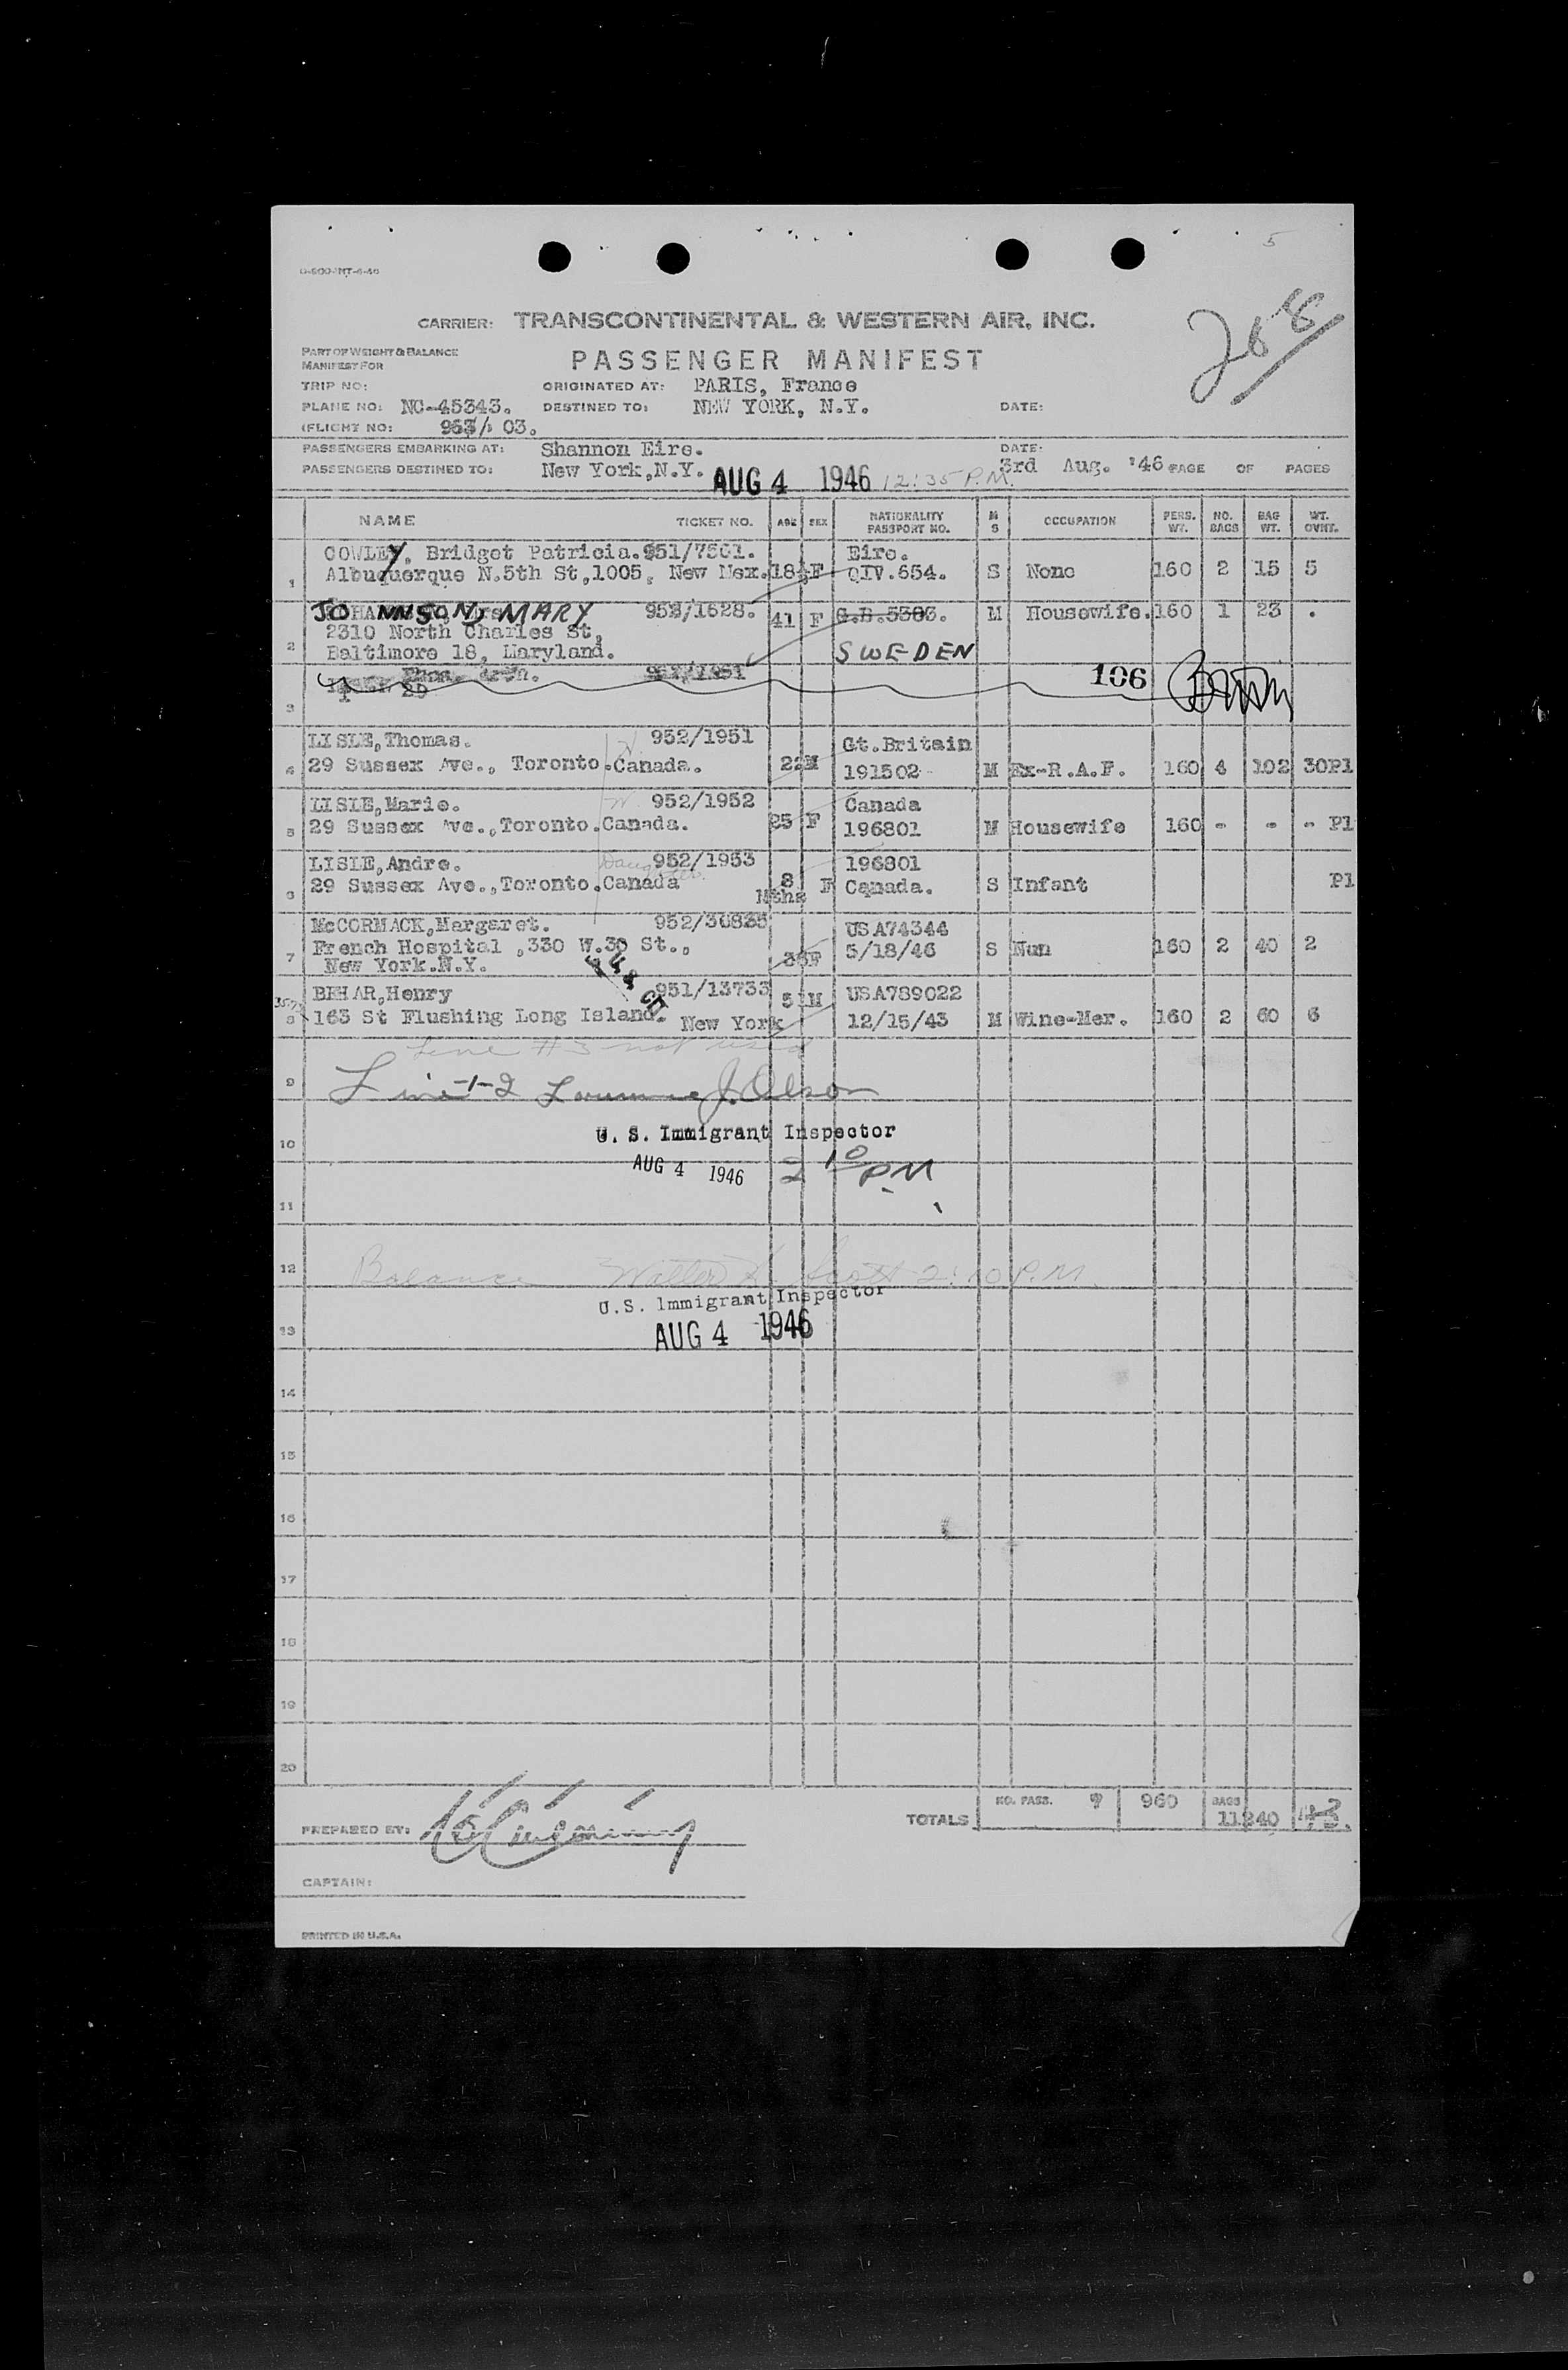 5
CARRIER: TRANSCONTINENTAL & WESTERN AIR, INC.
268
PART OF WEIGHT & BALANCE
MANIFEST FOR
PASSENGER MANIFEST
TRIP NO: ORIGINATED AT: PARIS, France
PLANE NO: NC-45343. DESTINED TO: NEW YORK, N.Y. DATE:
(FLIGHT NO: 03.
PASSENGERS EMBARKING AT: Shannon Eire. DATE:
PASSENGERS DESTINED TO: New York,N.Y. AUG 4 1946 12:35 P.M. 3rd Aug. '46 PAGE OF PAGES
NAME TICKET NO. AGE SEX NATIONALITY PASSPORT NO. M S OCCUPATION PERS. WT. NO. BAGS BAG WT. WT. OVHT.
COWLEY, Bridget Patricia. 951/7501. Eire.
1 Albuquerque N.5th St,1005, New Mex. 18½ F QIV.654. S None 160 2 15 5
JOHNNSON, MARY 952/1628. 41 F G.B.5303. M Housewife. 160 1 23 .
2310 North Charles St,
2 Baltimore 18, Maryland. SWEDEN
106
3
LISLE,Thomas. H. 952/1951 Gt.Britain
4 29 Sussex Ave., Toronto.Canada. M 191502 M Ex-R.A.F. 160 4 102 30Pl
LISLE,Marie. W. 952/1952 Canada
5 29 Sussex Ave.,Toronto.Canada. 25 F 196801 M Housewife 160 - - - Pl
LISLE,Andre. Daughter. 952/1953 196801
6 29 Sussex Ave.,Toronto.Canada 8 Mths F Canada. S Infant Pl
McCORMACK,Margaret. 952/30835 USA74344
7 French Hospital ,330 W.30 St., F 5/18/46 S Nun 160 2 40 2
New York.N.Y.
BEHAR,Henry 951/13733 51 M USA789022
8 163 St Flushing Long Island. New York 12/15/43 M Wine-Mer. 160 2 60 6
Line #3 not used
9 Line 1-2 Lawrence J. Olson
10 U. S. Immigrant Inspector
AUG 4 1946 2 10 PM
11
12 Balance Walter H. Scott 2:10 P.M.
U.S. Immigrant Inspector
13 AUG 4 1946
14
15
16
17
18
19
20
TOTALS NO. PASS. 7 960 BAGS 11 240 43.
PREPARED BY:
CAPTAIN:
PRINTED IN U.S.A.